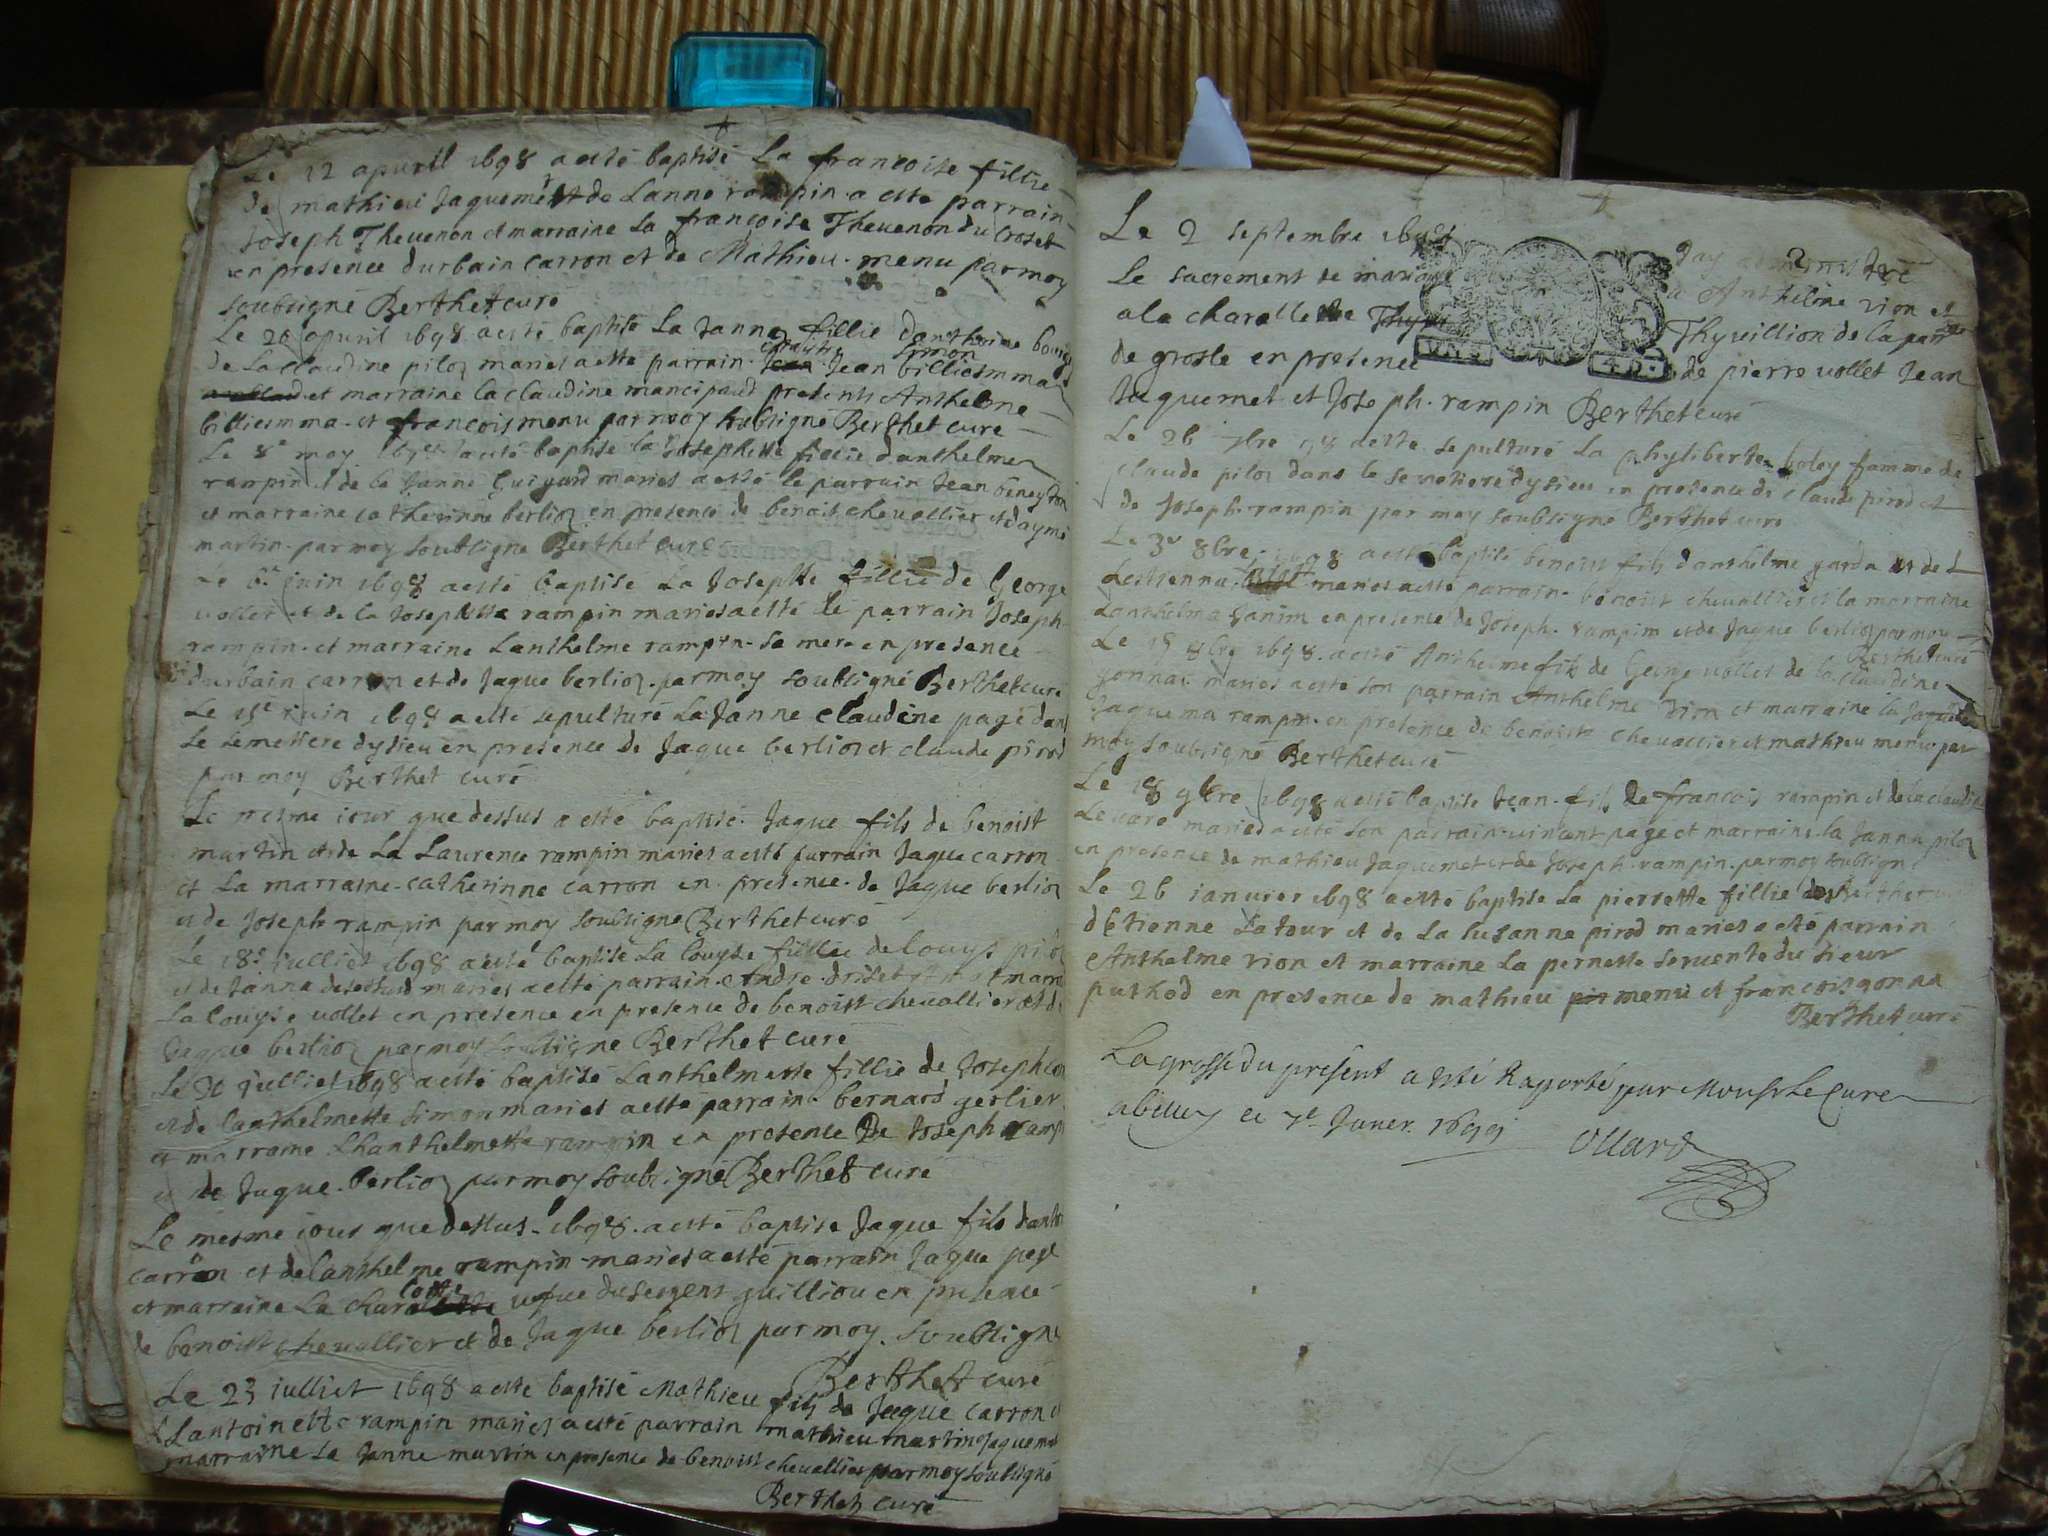 Le 12 apuril 1698 a esté baptisé La francoise fillie
de mathieu Jaquemet et de Lanne rampin a este parrain
Joseph Theuenon et marraine La francoise Theuenon du Croset
en presence durbain carron et de Mathieu menu par moy
soubsigné Berthet curé
Le 20 apuril 1698 a esté baptisé La Janne fillie danthoine
de La claudine piloz mariés a este parrain Jean billiemma
et marraine la claudine mancipaud presents Anthelme
billiemma et francois menu par moy soubsigné Berthet curé
Le 8e may 1698 a esté baptisé la Josephte fillie danthelme
rampin et de la Janne Guigard mariés a esté le parrain Jean beneyton
et marraine catherinne berlioz en presence de benoist cheuallier et daymé
martin par moy soubsigné Berthet curé
Le 6e juin 1698 a esté baptisé La Josephte fillie de George
uollet et de la Josephte rampin mariés a esté le parrain Joseph
rampin et marraine Lanthelme rampin sa mere en presence
durbain carron et de Jaque berlioz par moy soubsigné Berthet curé
Le 15e juin 1698 a esté sepulturé La Janne claudine page dans
Le semetiere dysieu en presence de Jaque berlioz et claude pirod
par moy Berthet curé
Le mesme iour que dessus a esté baptisé Jaque fils de benoist
martin et de La Laurence rampin mariés a esté parrain Jaque carron
et La marraine catherinne carron en presence de Jaque berlioz
et de Joseph rampin par moy soubsigné Berthet curé
Le 18e iulliet 1698 a esté baptisé La Louyse fillie de Louys piloz
et de Janne mariés a esté parrain Andre driset et marra
La Louyse uollet en presence en presence de benoist cheuallier et de
Jaque berlioz par moy soubsigné Berthet curé
Le 20 iulliet 1698 a esté baptisé Lanthelmette fillie de Joseph
et de Lanthelmette Simon mariés a esté parrain bernard gerlier
et marraine Lhanthelmette rampin en presence De Joseph ramp
et de Jaque berlioz par moy soubsigné Berthet curé
Le mesme iour que dessus 1698 a esté baptisé Jaque fils dant
carron et de Lanthelme rampin mariés a esté parrain Jaque page
et marraine La uefue du sergent guilliou en presence
de benoist cheuallier et de Jaque berlioz par moy soubsigné
Berthet curé
Le 23 iulliet 1698 a esté baptisé Mathieu fils de Jaque carron et
Lantoinette rampin mariés a esté parrain mathieu martin
marraine La Janne martin en presence de benoist cheuallier par moy soubsigné
Berthet curé
Le 2 septembre 1698 Jay administré
Le sacrement de mariage a Anthelme rion et
a la charlotte Thyuillion de la par
de grosle en presence de pierre uollet Jean
Jaquemet et Joseph rampin Berthet curé
Le 26 7bre 98 a este sepulturé La phyliberte boley famme de
claude piloz dans le semetiere dysieu en presence de claude pirod et
de Joseph rampin par moy soubsigné Berthet curé
Le 3e 8bre 1698 a esté baptisé benoist fils danthelme garda et de
Lestienna mariés a este parrain benoist cheuallier et la marraine
Lanthelma Janim en presence de Joseph rampim et de Jaque berlioz par moy
Berthet curé
Le 15 8bre 1698 a esté Anthelme fils de George uollet de la claudine
gonnat mariés a esté son parrain Anthelme rion et marraine la
Jaquema rampin en presence de benoist cheuallier et mathieu menu par
moy soubsigné Berthet curé
Le 18 9bre 1698 a esté baptisé Jean fils de francois rampin et de la claudine
Leuare mariés a esté son parrain uincent page et marraine la Janna piloz
en presence de mathieu Jaquemet et de Joseph rampin par moy soubsigné
Berthet
Le 26 ianuier 1698 a esté baptisé La pierrette fillie
dEtienne Latour et de La Susanne pirod mariés a esté parrain
Anthelme rion et marraine La pernette seruente du sieur
puthod en presence de mathieu menu et francois gonna
Berthet curé
La grosse du present a esté Raporté par Monsr Le Cure
a belley ce 7e Janer 1699 Ollard